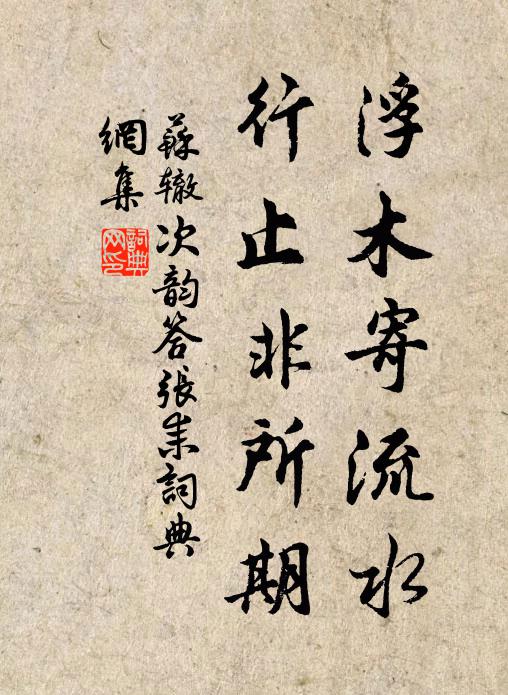 浮木寄流水
行止非所期
蘇辙次韵答張耒詞典
網集
詞典
网印